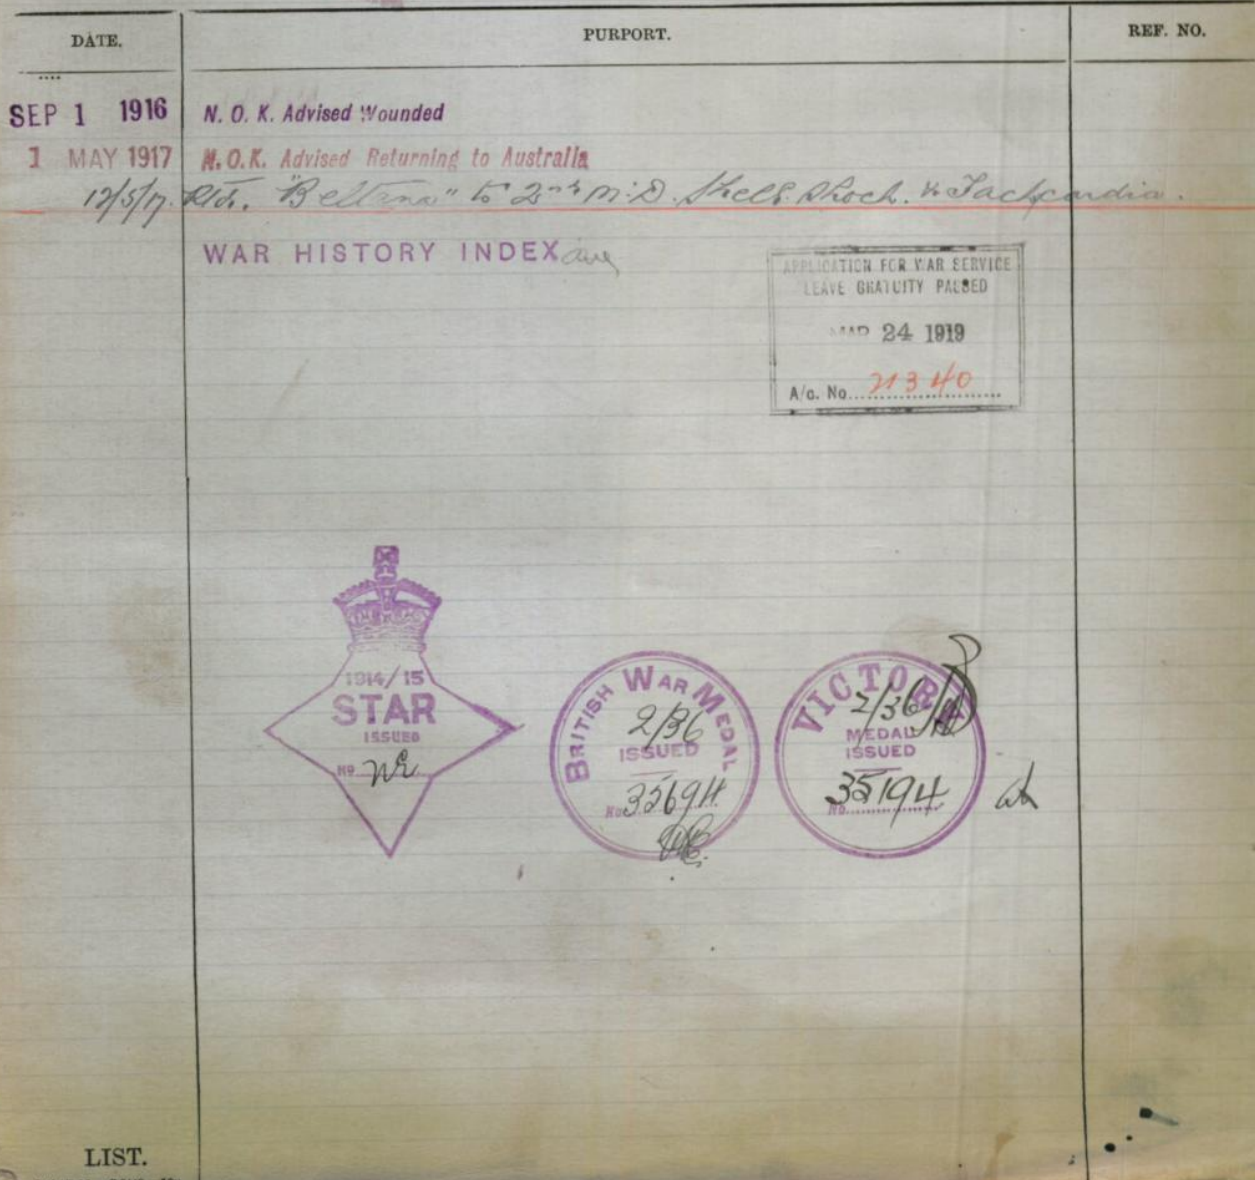 DATE. PURPORT. REF. NO.
SEP 1 1916 N. O. K. Advised Wounded
1 MAY 1917 N.O.K. Advised Returning to Australia
12/5/17. Rtd. "Beltana" to 2nd M.D. Shell Shock. & Tachycardia.
WAR HISTORY INDEX
APPLICATION FOR WAR SERVICE
LEAVE GRATUITY PASSED
MAR 24 1919
A/c. No. 21340
1914/15
STAR
ISSUED
No NE
BRITISH WAR MEDAL
2/36
ISSUED
No 35694
VICTORY
2/36
MEDAL
ISSUED
No. 35194
LIST.